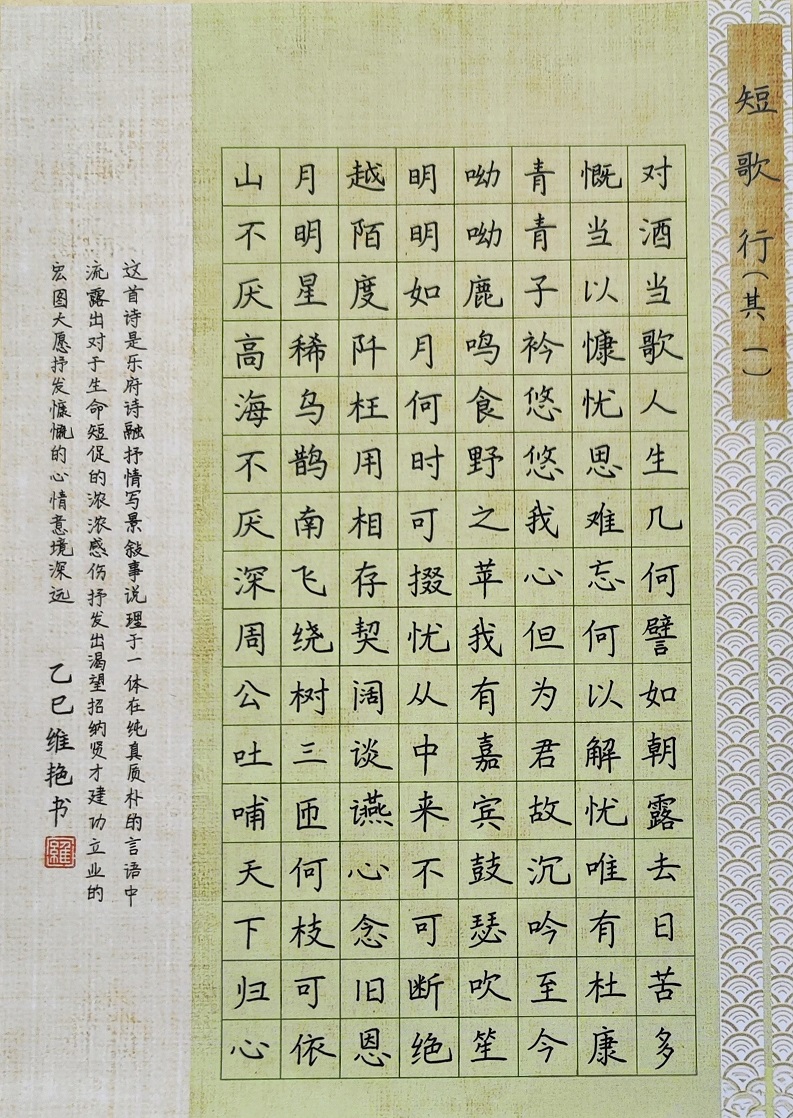 短歌行(其一)
对酒当歌人生几何譬如朝露去日苦多
慨当以慷忧思难忘何以解忧唯有杜康
青青子衿悠悠我心但为君故沉吟至今
呦呦鹿鸣食野之苹我有嘉宾鼓瑟吹笙
明明如月何时可掇忧从中来不可断绝
越陌度阡枉用相存契阔谈讌心念旧恩
月明星稀乌鹊南飞绕树三匝何枝可依
山不厌高海不厌深周公吐哺天下归心
这首诗是乐府诗融抒情写景叙事说理于一体在纯真质朴的言语中
流露出对于生命短促的浓浓感伤抒发出渴望招纳贤才建功立业的
宏图大愿抒发慷慨的心情意境深远 乙巳维艳书
維